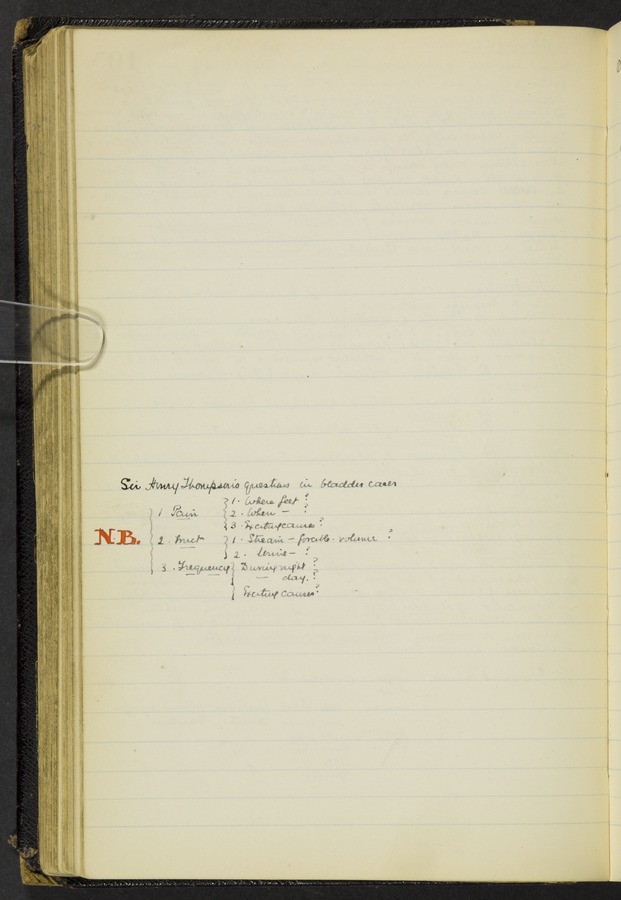 Sir Henry Thompson's questions in bladder cases
1. Where felt?
1 Pain 2. When - ?
3. Exciting causes?
N.B. 2. Mict 1. Stream - forcible. volume?
2. Urine - ?
3. Frequency During night?
— day.?
Exciting causes?